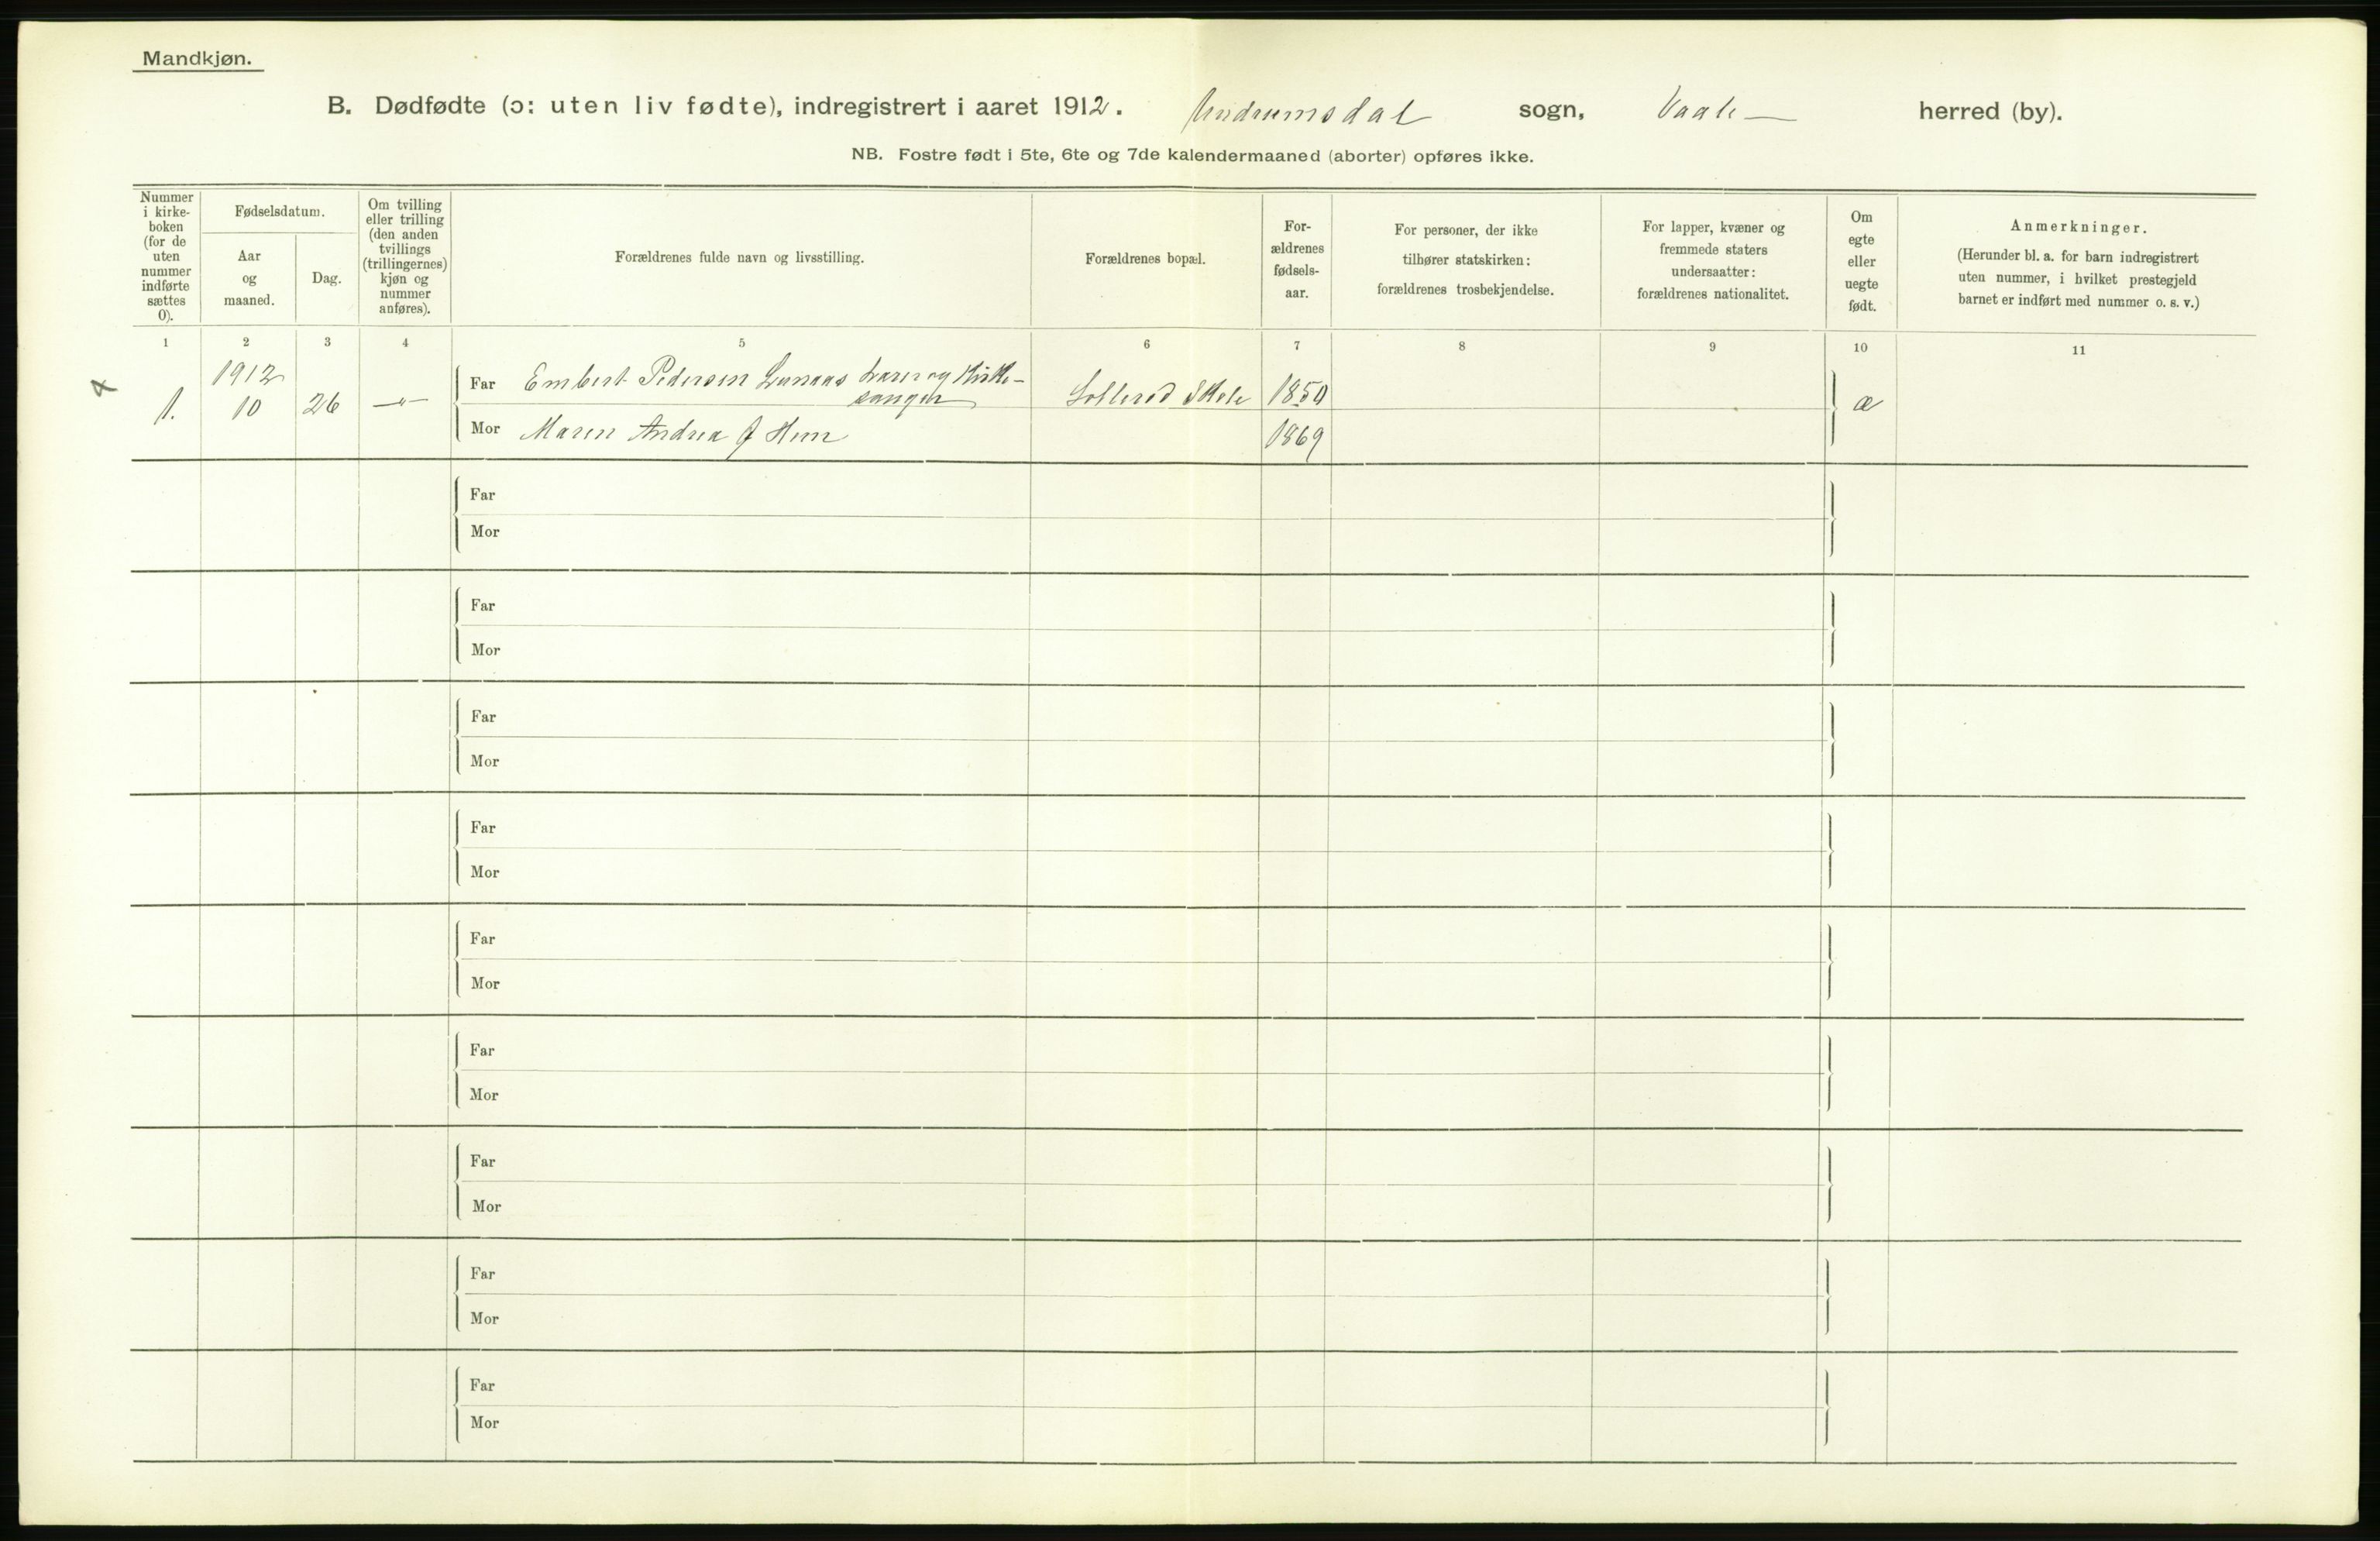 Mandkjøn.
B. Dødfødte (ɔ: uten liv fødte), indregistrert i aaret 1912. Undrumsdal sogn, Vaale herred (by).
NB. Fostre født i 5te, 6te og 7de kalendermaaned (aborter) opføres ikke.
Nummer
i kirke-
boken
(for de
uten
nummer
indførte
sættes
0).
Fødselsdatum.
Aar
og
maaned.
Dag.
Om tvilling
eller trilling
(den anden
tvillings
(trillingernes)
kjøn og
nummer
anføres).
Forældrenes fulde navn og livsstilling.
Forældrenes bopæl.
For-
ældrenes
fødsels-
aar.
For personer, der ikke
tilhører statskirken:
forældrenes trosbekjendelse.
For lapper, kvæner og
fremmede staters
undersaatter:
forældrenes nationalitet.
Om
egte
eller
uegte
født.
Anmerkninger.
(Herunder bl. a. for barn indregistrert
uten nummer, i hvilket prestegjeld
barnet er indført med nummer o. s. v.)
1 2 3 4 5 6 7 8 9 10 11
1912
1. 10 26 —"—
Far Embert Pedersen Lunaas Lærer og Kirke-
sanger
Sollerød Skole 1850 æ
Mor Maren Andrea f Hem 1869
Far
Mor
Far
Mor
Far
Mor
Far
Mor
Far
Mor
Far
Mor
Far
Mor
Far
Mor
Far
Mor